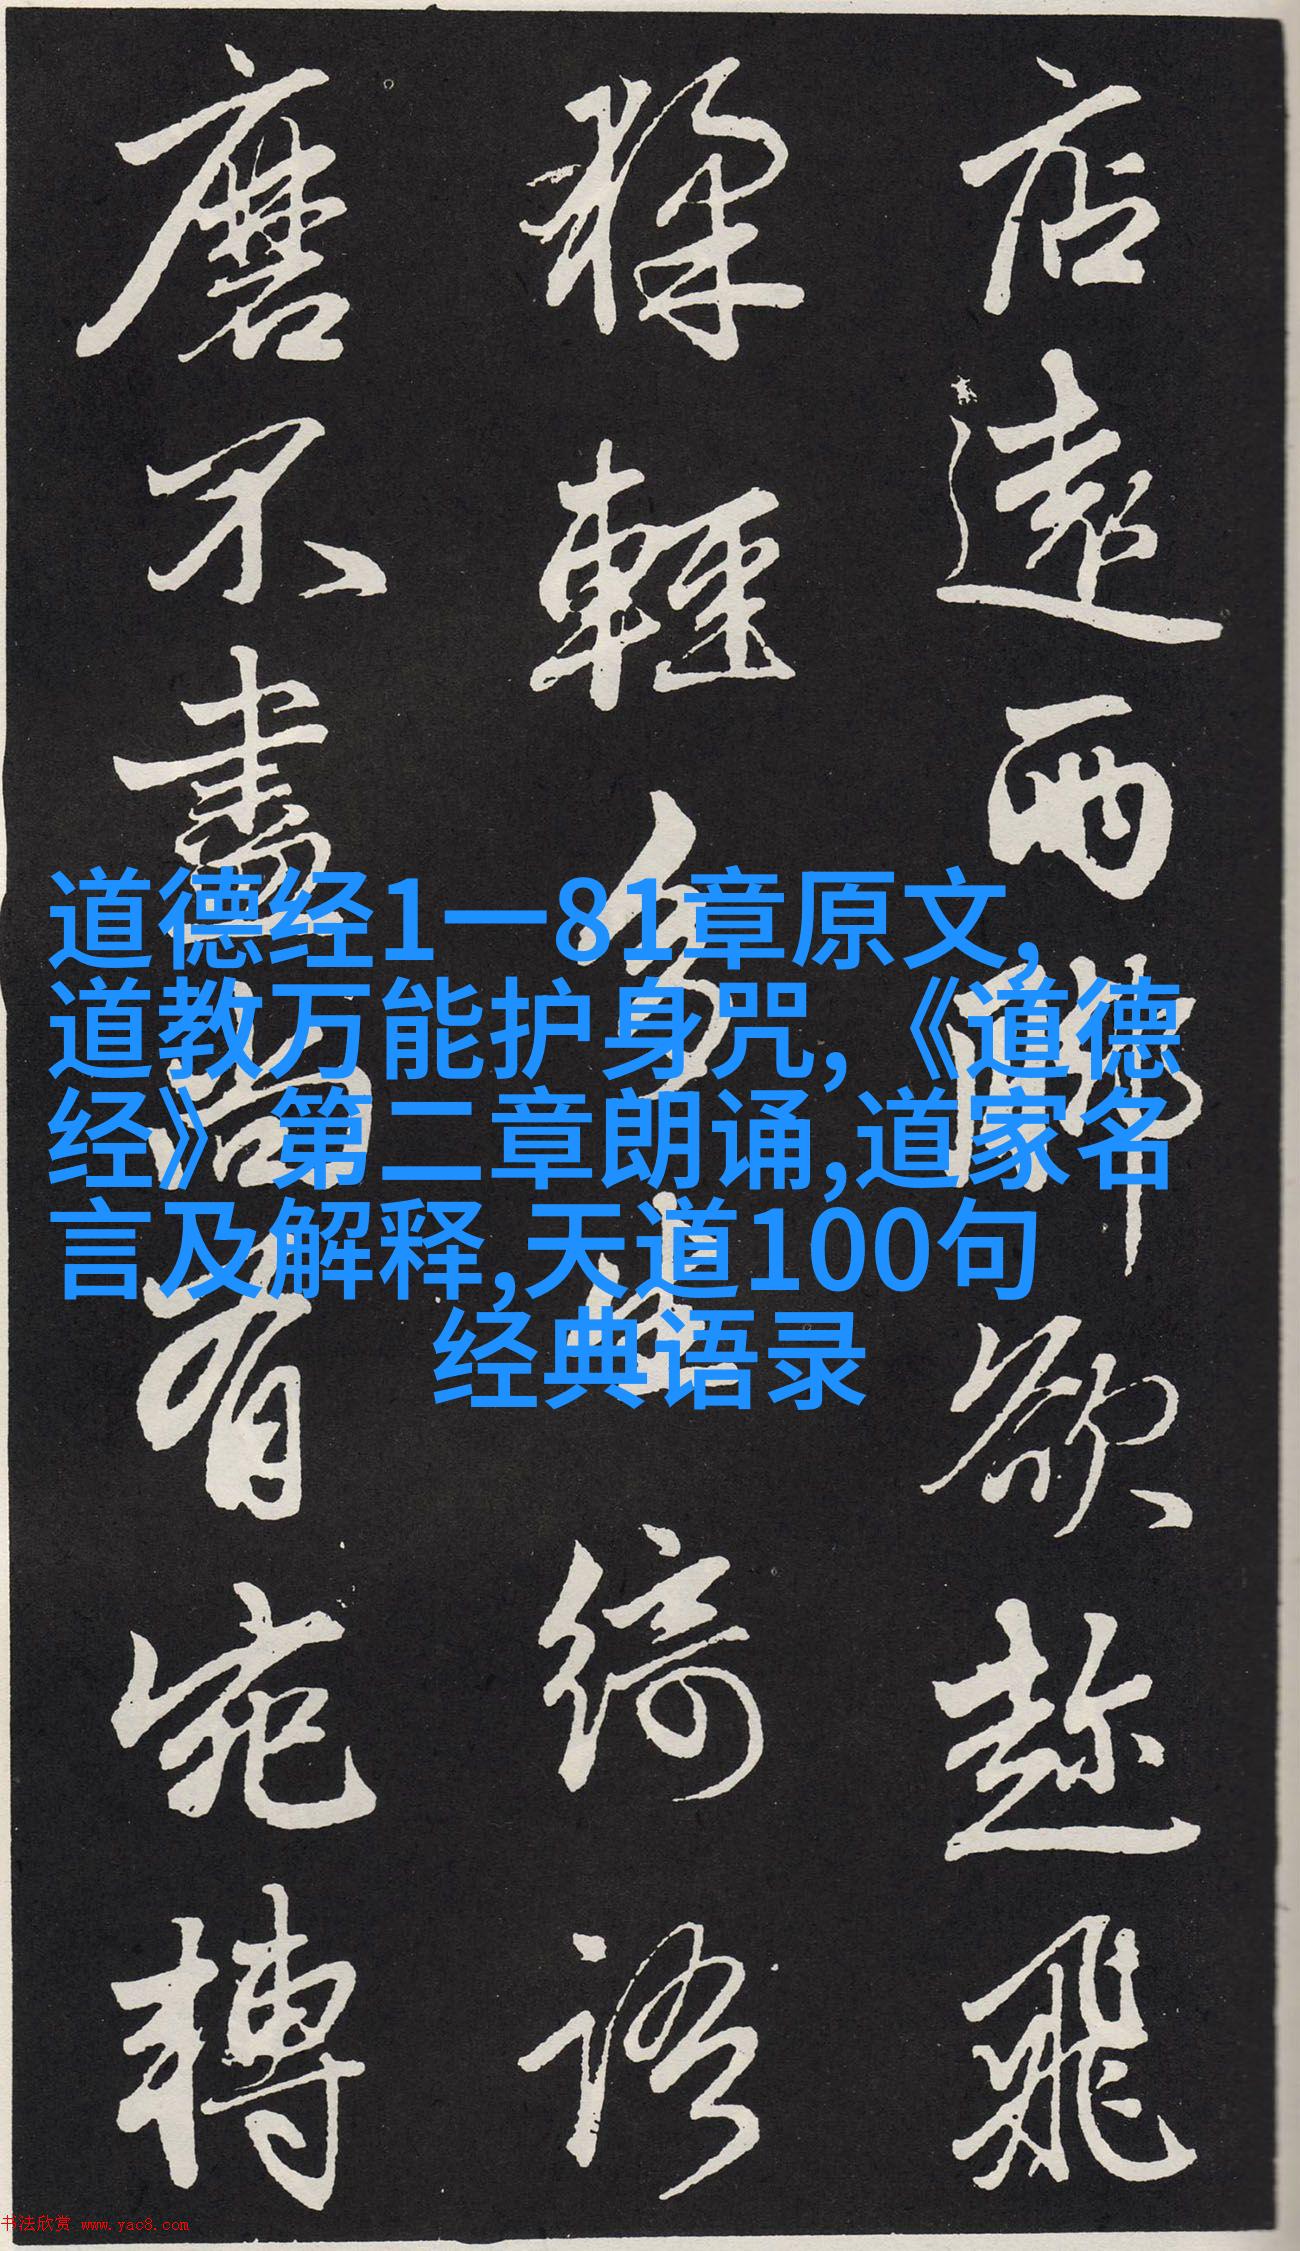 店遠雨聯欲趂飛
輕
綺語
磨不書
有宛轉
道德经1一81章原文,
道教万能护身咒,《道德
经》第二章朗诵,道家名
言及解释,天道100句
经典语录
书法欣赏 www.yac8.com